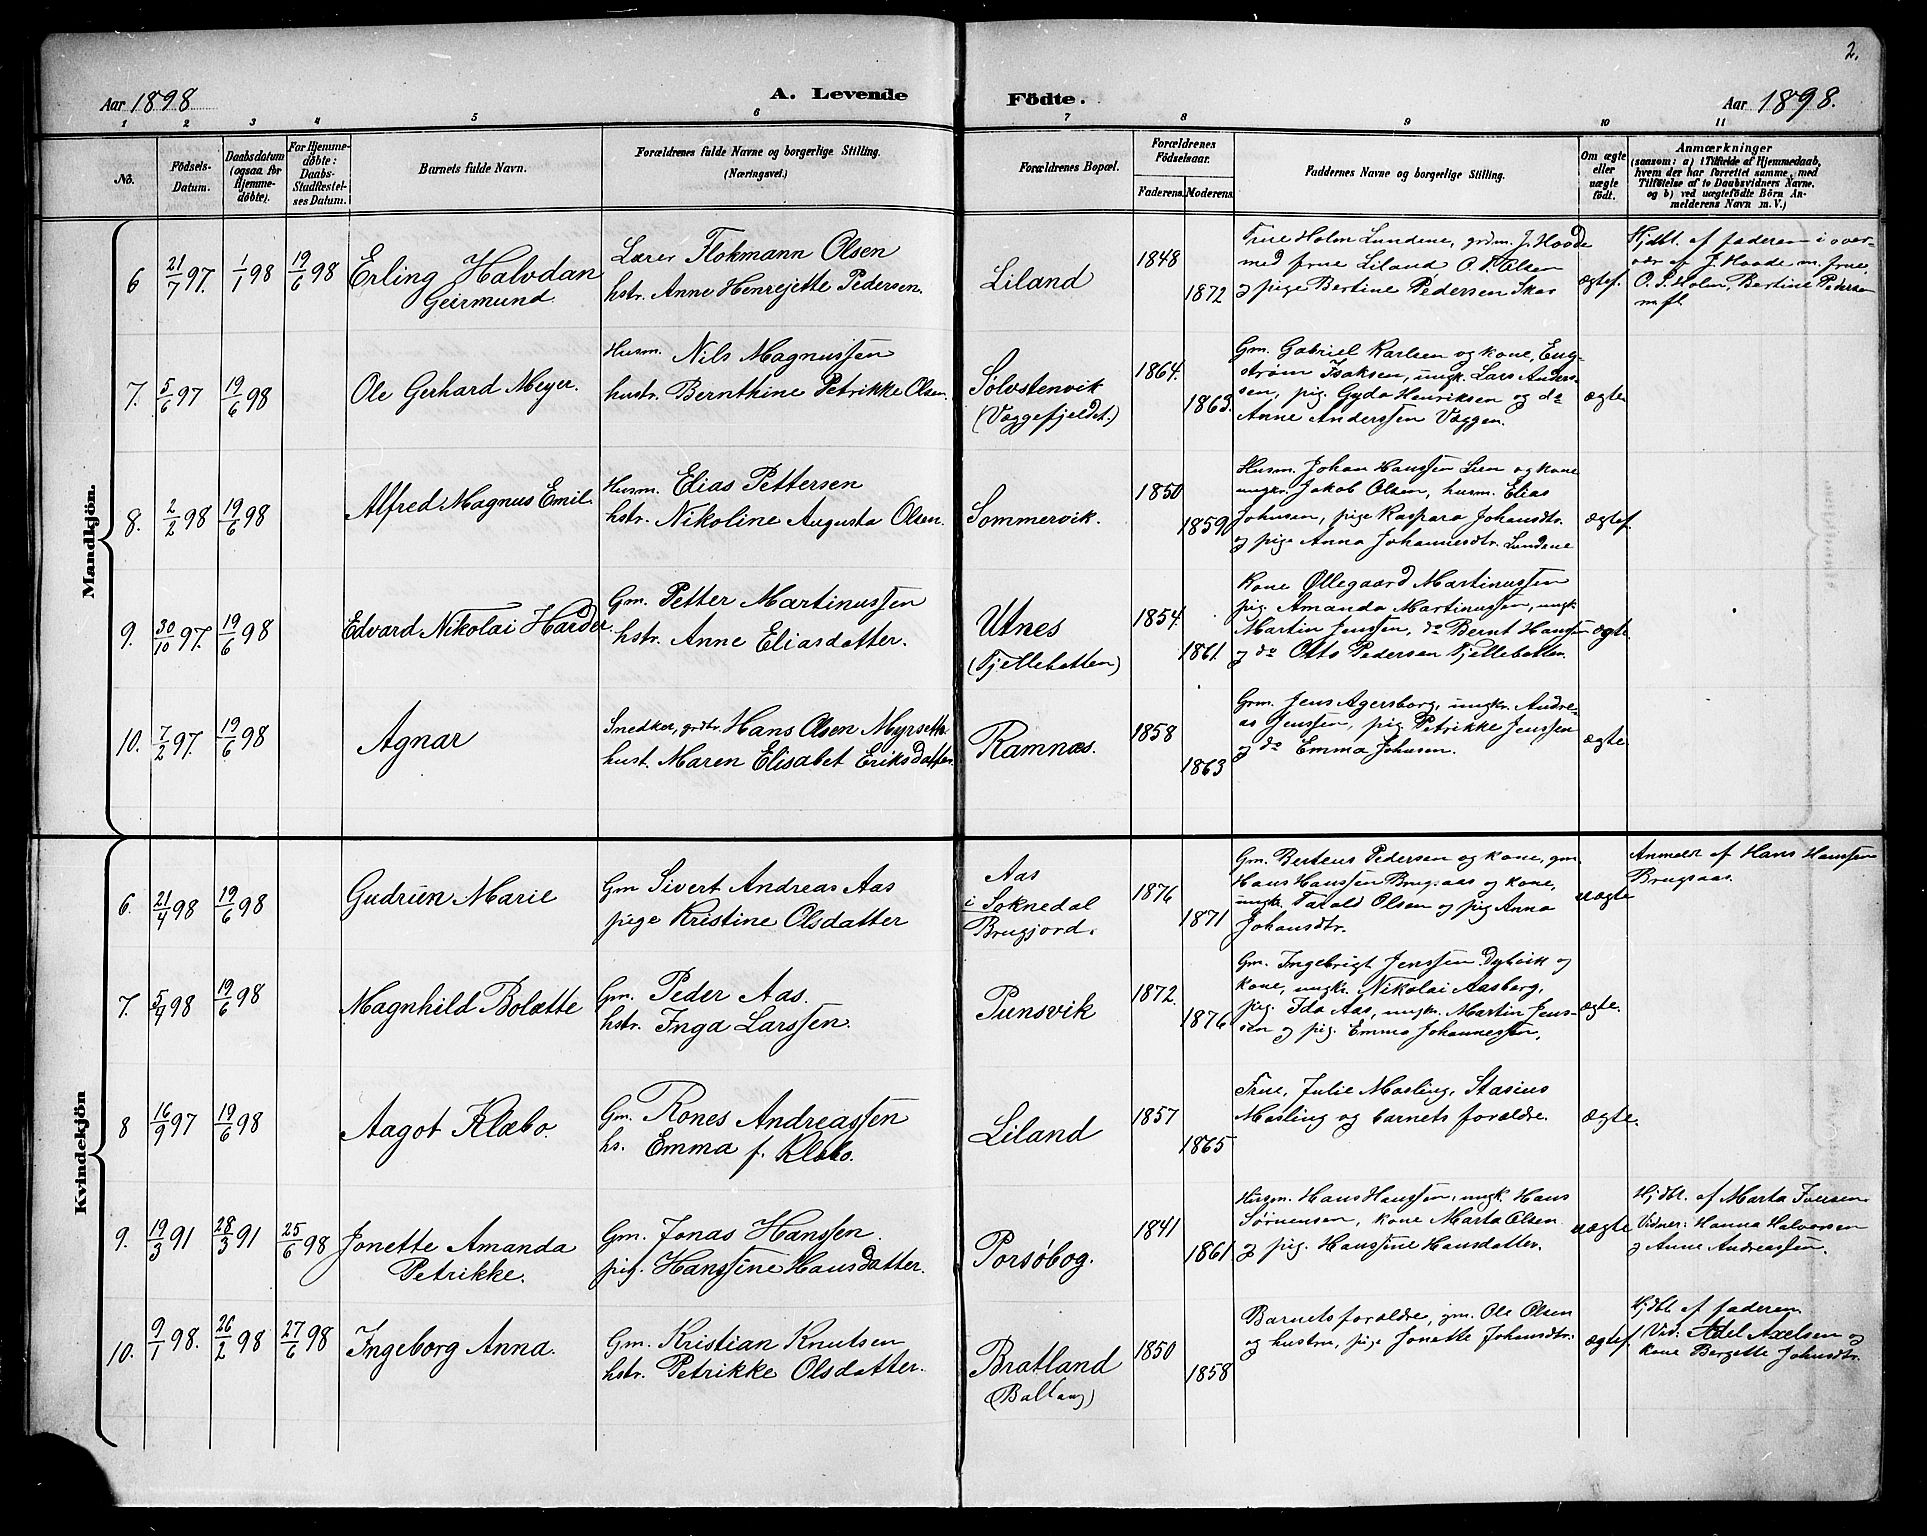 2.
Aar 1898
A. Levende
Födte.
Aar 1898.
1 2 3 4 5 6 7 8 9 10 11
No.
Födsels-Datum.
Daabsdatum (ogsaa for Hjemme-döbte).
For Hjemme-döbte: Daabs-Stadfæstel-ses Datum.
Barnets fulde Navn.
Forældrenes fulde Navne og borgerlige Stilling.
(Næringsvei.)
Forældrenes Bopæl.
Forældrenes Födselsaar.
Faderens. Moderens.
Faddernes Navne og borgerlige Stilling.
Om ægte eller uægte födt.
Anmærkninger
(saasom: a) i Tilfælde af Hjemmedaab,
hvem der har forrettet samme, med
Tilföielse af to Daabsvidners Navne.
og b) ved uægtefödte Börn An-
melderens Navn m. V.)
Mandkjön.
6 21/7 97. 1/1 98 19/6 98
Erling Halvdan
Geirmund.
Lærer Flokmann Olsen
hstr. Anne Henrejette Pedersen.
Liland
1848
1872
Frue Holm Lundene, grdm. J. Hoode
med frue Liland O. P. Olsen
og pige Bertine Pedersen Skar
ægtef.
Hjdbt. af faderen i over-
vær af J. Hoode m. frue,
O. P. Holm, Bertine Pedersen
m. fl.
7. 5/6 97 19/6 98
Ole Gerhard Meyer.
Husm. Nils Magnussen
hustr. Bernthine Petrikke Olsen.
Sølvstenvik
(Væggefjeldet.)
1864.
1863.
Gm. Gabriel Karlsen og kone, Eng-
strøm Isaksen, ungk. Lars Anders-
sen, pig. Gyda Henriksen og do
Anne Anderssen Væggen.
ægte
8. 2/2 98 19/6 98
Alfred Magnus Emil.
Husm. Elias Pettersen
hstr. Nikoline Augusta Olsen.
Sommervik.
1850
1859
Husm. Johan Hanssen Lien og kone
ungkr. Jakob Olsen, husm. Elias
Johnsen, pige Kaspara Johansdtr.
og pige Anna Johannesdtr. Lundene
ægtef.
9. 30/10 97. 19/6 98
Edvard Nikolai Harder.
Gm. Petter Martinussen
hstr. Anne Eliasdatter.
Utnes
(Fjellebotten)
1854.
1861.
Kone Ollegaard Martinussen
pig. Amanda Martinussen, ungk.
Martin Jenssen, do Bernt Hanssen
og do Otto Pedersen Fjellebotten.
ægte
10. 7/2 97. 19/6 98
Agnar
Snedker, grdbr. Hans Olsen Myrseth
hust. Maren Elisabet Eriksdatter.
Ramnæs.
1858
1863
Grm. Jens Agersborg, ungkr. Andre-
as Jenssen, pig. Petrikke Jenssen
og do Emma Johnsen.
ægte.
Kvindekjön
6. 21/4 98 19/6 98
Gudrun Marie
Gm Sivert Andreas Aas
pige Kristine Olsdatter
Aas
i Soknedal
Brugjord.
1876
1871
Gm. Berteus Pedersen og kone, gm.
Hans Hanssen Brugsaas og kone,
ungk. Farald Olsen og pig. Anna
Johansdtr.
uægte
Anmeldt af Hans Hanssen
Brugsaas.
7. 5/4 98 19/6 98
Magnhild Bolætte
Gm. Peder Aas.
hstr. Inga Larssen.
Punsvik
1872.
1876
Gm. Ingebrigt Jenssen Dybvik og
kone, ungkr. Nikolai Aasberg,
pig. Ida Aas, ungkr. Martin Jens-
sen og pig. Emma Johannessen.
ægte.
8 16/9 97 19/6 98
Aagot Klæbo.
Gm. Rones Andreassen
hs. Emma f. Klæbo.
Liland
1857
1865
Frue, Julie Mosling, Stasius
Mosling og barnets forældre.
ægte.
9. 19/3 91 28/3 91 25/6 98
Jonette Amanda
Petrikke.
Gm. Jonas Hanssen.
pig. Hanssine Hansdatter.
Porsøbog.
1841
1861
Husm. Hans Haugsen, ungk. Hans
Sørnensen, kone Marta Olsen
og pig. Hanssine Hansdatter.
uægte
Hjdbt. af Marta Iversen
Vidner: Hanna Halvorsen
og Anne Andreassen.
10. 9/1 98. 26/2 98 27/6 98
Ingeborg Anna.
Gm. Kristian Knutsen
hstr. Petrikke Olsdatter.
Bratland
(Baltang)
1850
1858
Barnets forældre, gm. Ole Olsen
og hustru, pige Jonette Johansdtr.
ægtef.
Hjdbt. af faderen.
Vid. Adel Axelsen og
kone Bergette Johnsdtr.